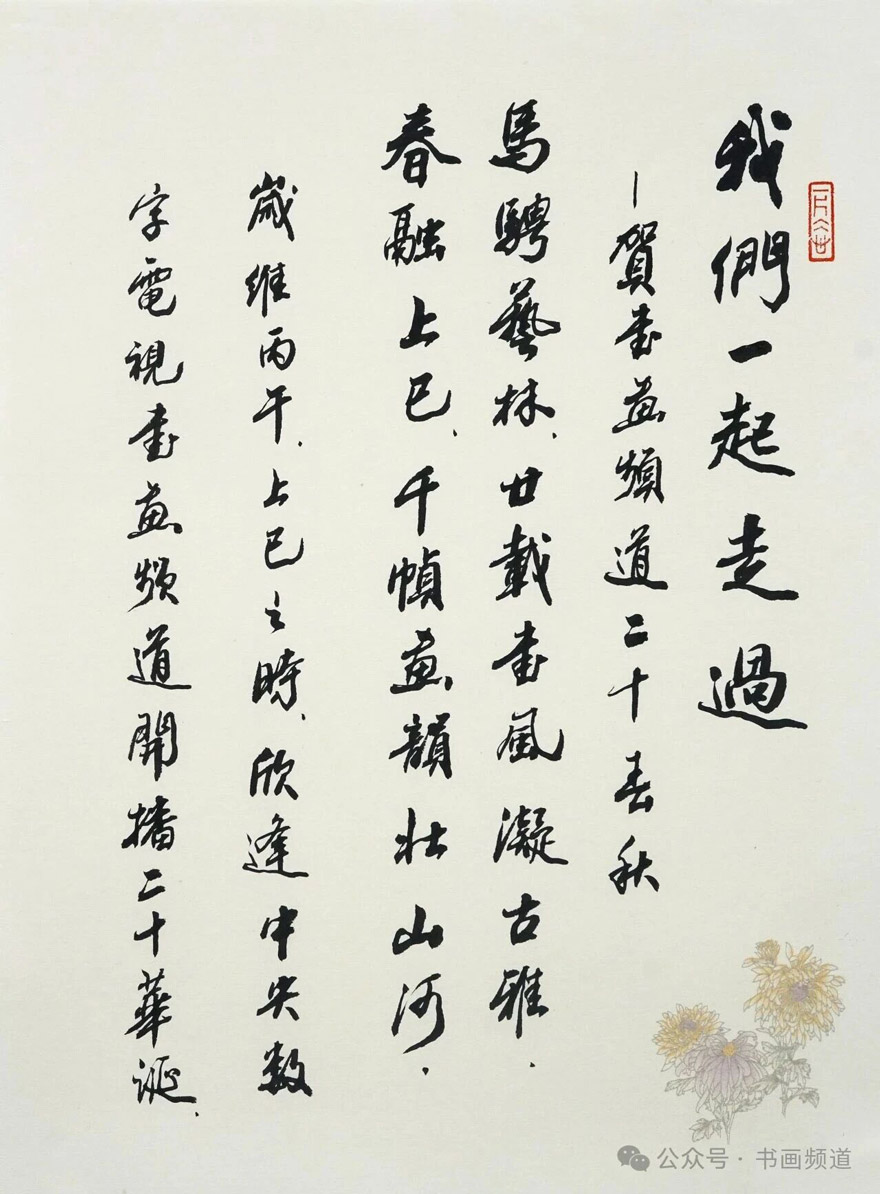 我們一起走過
—賀書畫頻道二十春秋
馬騁藝林、廿載書風凝古雅.
春融上巳、千幀畫韻壯山河.
歲維丙午、上巳之時、欣逢中央数
字電視書畫頻道開播二十華誕、
公众号·书画频道